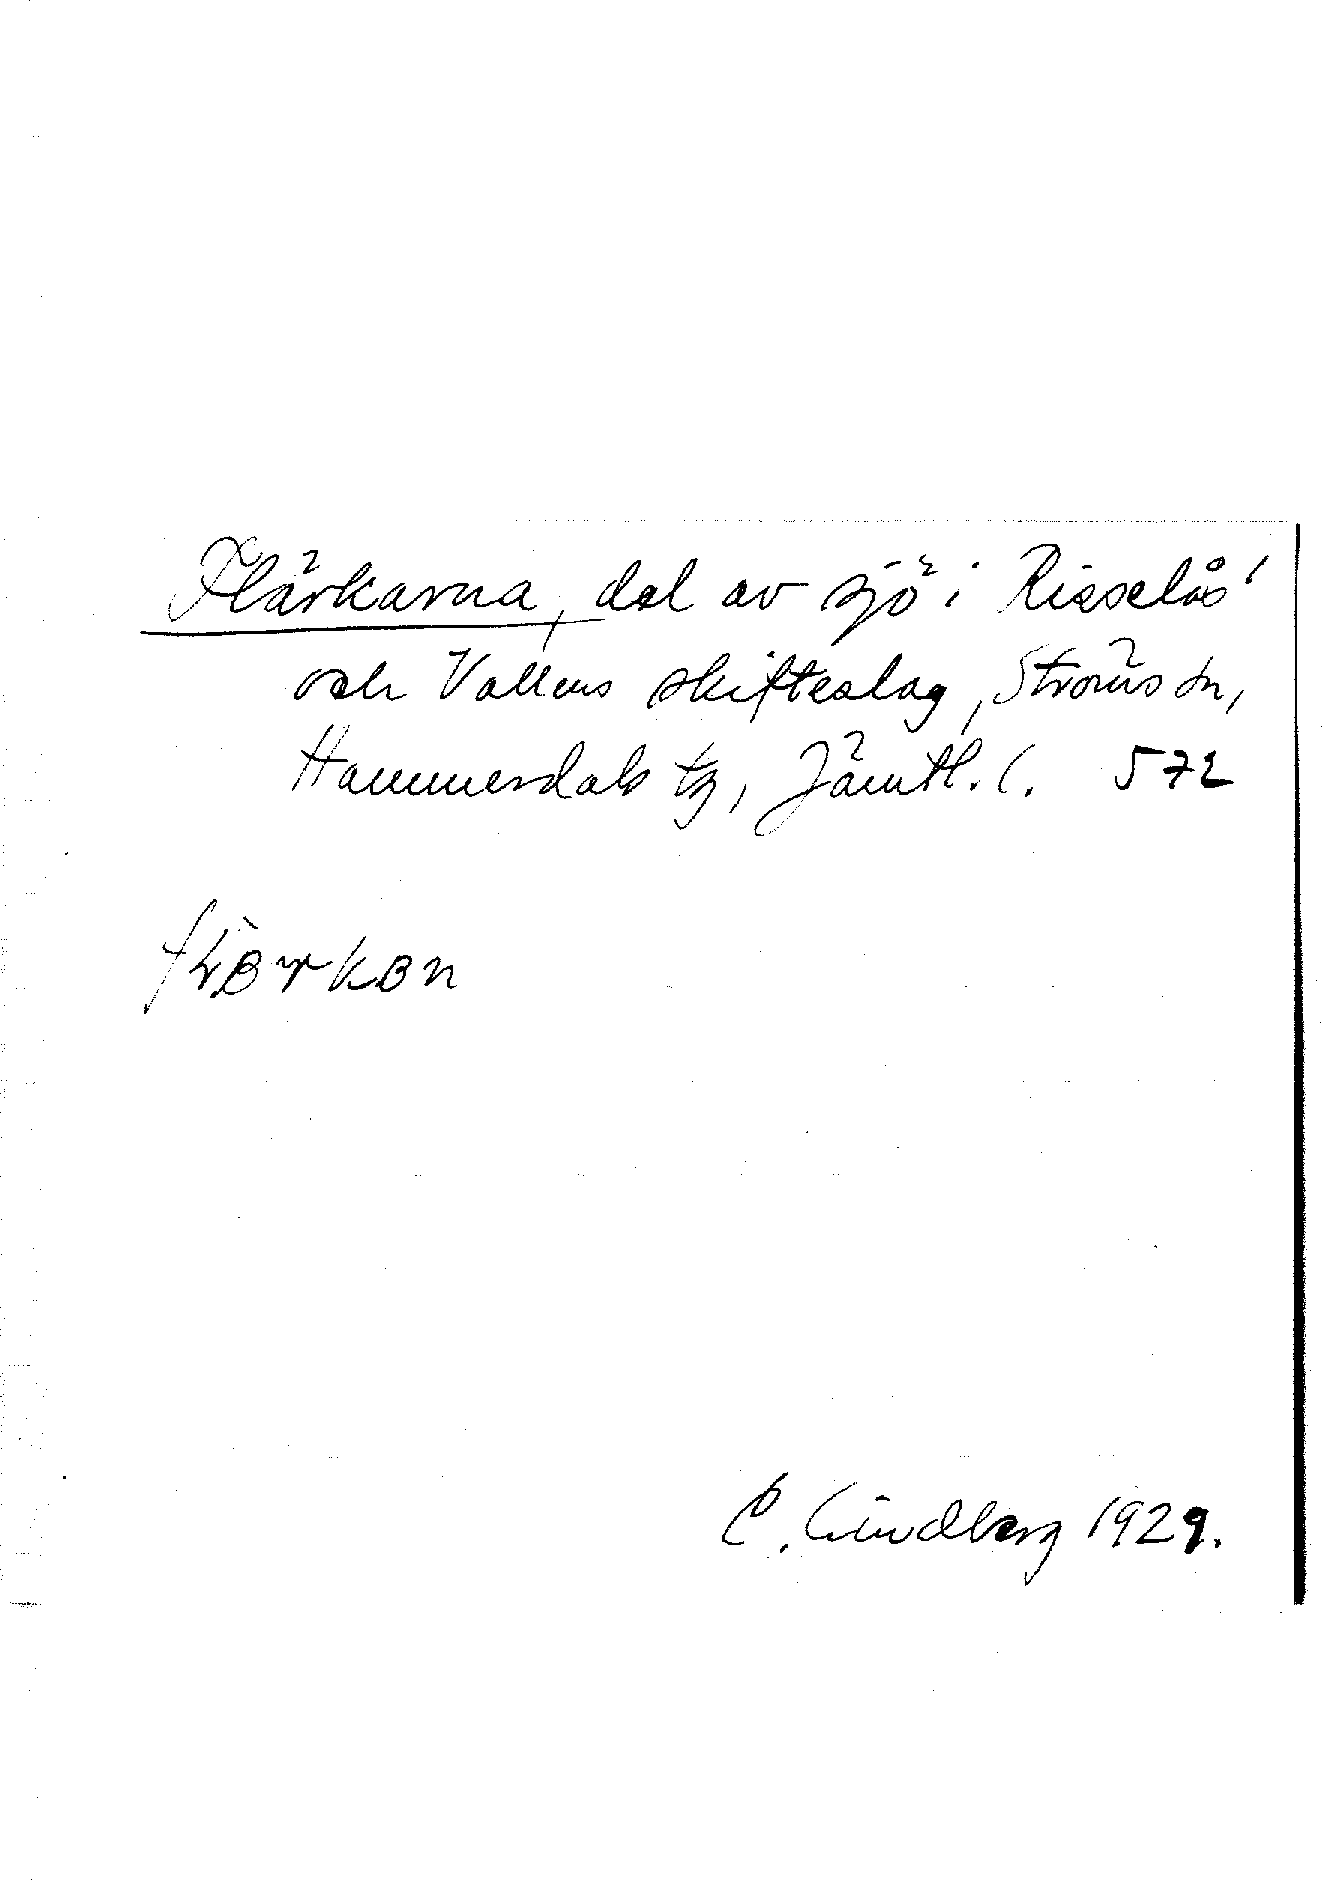 Flärkarna, del av sjö i Risselås'
och Vallens skifteslag, Ströms sn,
Hammerdals tg, Jämtl. l. 572
C. Lindberg 1929.